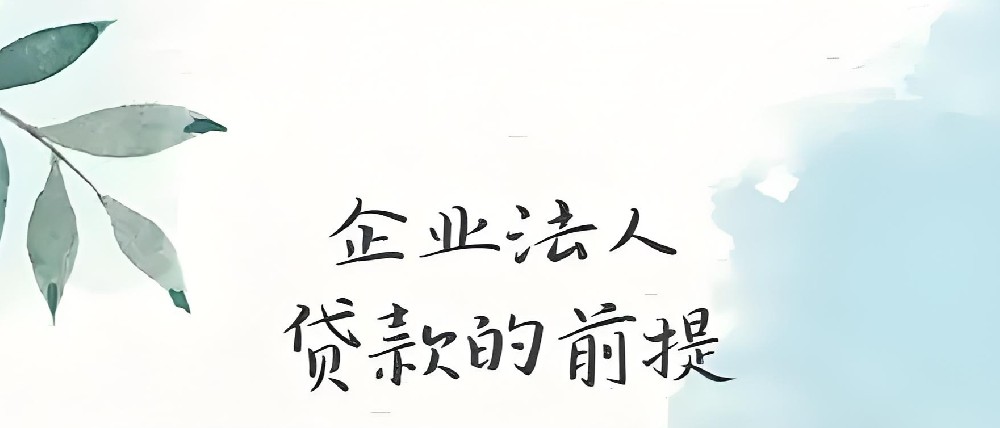 企业法人
贷款的前提